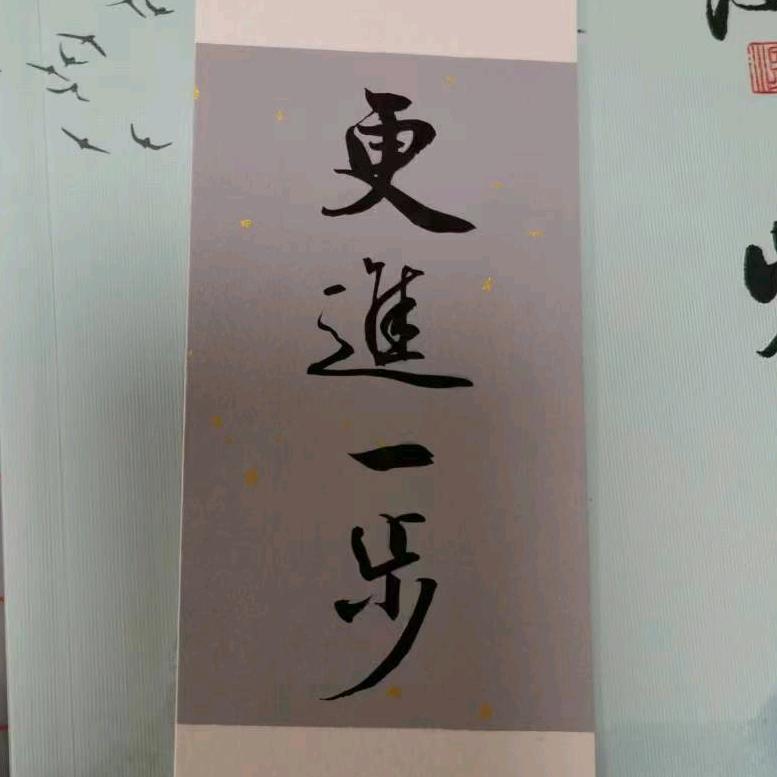 更進一步